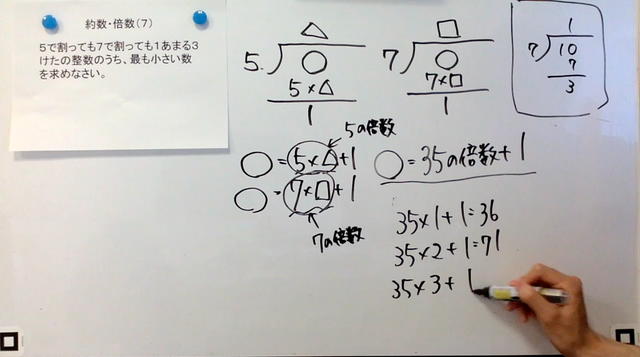 約数・倍数(7)
5で割っても7で割っても1あまる3
けたの整数のうち、最も小さい数
を求めなさい。
△
5 ○
5×△
1
□
7 ○
7×□
1
1
7 10
7
3
5の倍数
○=5×△+1
○=7×□+1
7の倍数
○=35の倍数+1
35×1+1=36
35×2+1=71
35×3+1